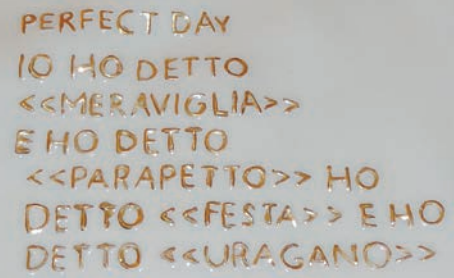 PERFECT DAY
IO HO DETTO
<<MERAVIGLIA>>
E HO DETTO
<<PARAPETTO>> HO
DETTO <<FESTA>> E HO
DETTO <<URAGANO>>